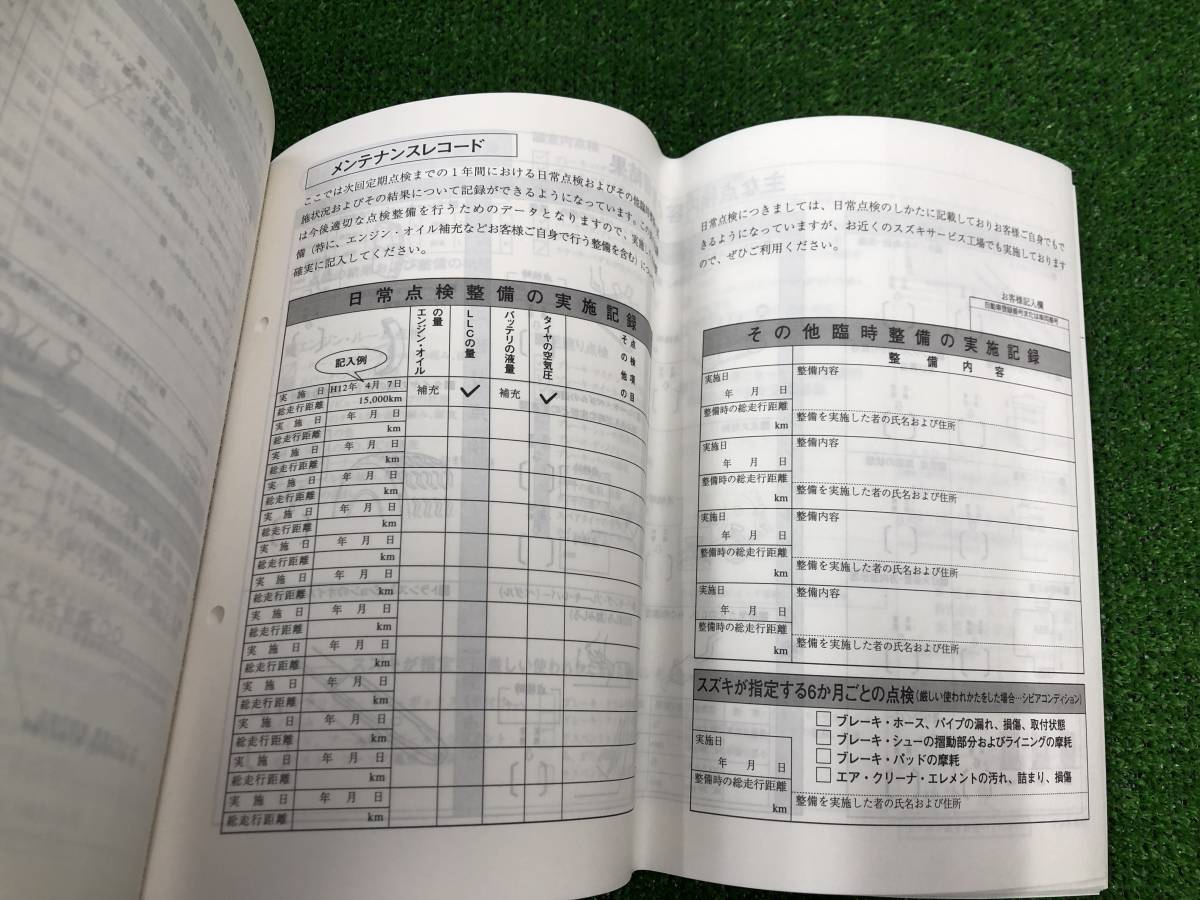 メンテナンスレコード
ここでは次回定期点検までの1年間における日常点検およびその他臨時
施状況およびその結果について記録ができるようになっています。この
は今後適切な点検整備を行うためのデータとなりますので、実施し
備（特に、エンジン・オイル補充などお客様ご自身で行う整備を含む）につ
確実に記入してください。
日常点検整備の実施記録
エンジン・オイルの量
LLCの量
バッテリの液量
タイヤの空気圧
その他の点検項目
記入例
実施日 H12年 4月 7日 補充 ✓ 補充 ✓
総走行距離 15,000km
実施日 年 月 日
総走行距離 km
実施日 年 月 日
総走行距離 km
実施日 年 月 日
総走行距離 km
実施日 年 月 日
総走行距離 km
実施日 年 月 日
総走行距離 km
実施日 年 月 日
総走行距離 km
実施日 年 月 日
総走行距離 km
実施日 年 月 日
総走行距離 km
実施日 年 月 日
総走行距離 km
実施日 年 月 日
総走行距離 km
実施日 年 月 日
総走行距離 km
実施日 年 月 日
総走行距離 km
日常点検につきましては、日常点検のしかたに記載しておりお客様ご自身でもで
きるようになっていますが、お近くのスズキサービス工場でも実施しております
ので、ぜひご利用ください。
お客様記入欄
自動車登録番号または車両番号
その他臨時整備の実施記録
整備内容
実施日 整備内容
年 月 日
整備時の総走行距離 整備を実施した者の氏名および住所
km
実施日 整備内容
年 月 日
整備時の総走行距離 整備を実施した者の氏名および住所
km
実施日 整備内容
年 月 日
整備時の総走行距離 整備を実施した者の氏名および住所
km
実施日 整備内容
年 月 日
整備時の総走行距離 整備を実施した者の氏名および住所
km
スズキが指定する6か月ごとの点検（厳しい使われかたをした場合…シビアコンディション）
ブレーキ・ホース、パイプの漏れ、損傷、取付状態
ブレーキ・シューの摺動部分およびライニングの摩耗
ブレーキ・パッドの摩耗
エア・クリーナ・エレメントの汚れ、詰まり、損傷
実施日
年 月 日
整備時の総走行距離 整備を実施した者の氏名および住所
km